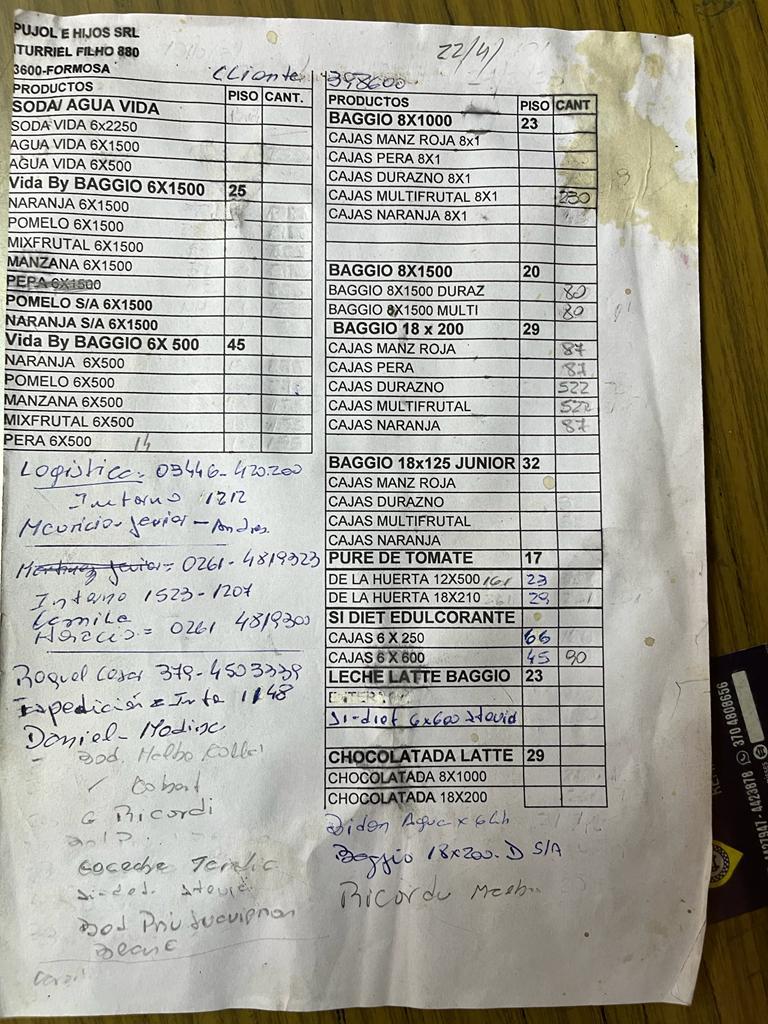 PUJOL E HIJOS SRL
ITURRIEL FILHO 880
3600-FORMOSA
Cliente 398600
22/4/
PRODUCTOS PISO CANT.
SODA/ AGUA VIDA
SODA VIDA 6x2250
AGUA VIDA 6X1500
AGUA VIDA 6X500
Vida By BAGGIO 6X1500 25
NARANJA 6X1500
POMELO 6X1500
MIXFRUTAL 6X1500
MANZANA 6X1500
PEPA 6X1500
POMELO S/A 6X1500
NARANJA S/A 6X1500
Vida By BAGGIO 6X 500 45
NARANJA 6X500
POMELO 6X500
MANZANA 6X500
MIXFRUTAL 6X500
PERA 6X500 14
Logistica = 03446-420200
Interno 1212
Mauricio - Javier - Andres
Martinez Javier = 0261-4819323
Interno 1523-1207
Camila
Horacio = 0261 4819300
Roquel Cesar 379-4503339
Expedición = Inte 1148
Daniel - Modina
Bod. Malbo
Cobart
Ricordi
PRODUCTOS PISO CANT
BAGGIO 8X1000 23
CAJAS MANZ ROJA 8x1
CAJAS PERA 8X1
CAJAS DURAZNO 8X1
CAJAS MULTIFRUTAL 8X1 230
CAJAS NARANJA 8X1
BAGGIO 8X1500 20
BAGGIO 8X1500 DURAZ 80
BAGGIO 8X1500 MULTI 80
BAGGIO 18 x 200 29
CAJAS MANZ ROJA 87
CAJAS PERA 87
CAJAS DURAZNO 522
CAJAS MULTIFRUTAL 522
CAJAS NARANJA 87
BAGGIO 18x125 JUNIOR 32
CAJAS MANZ ROJA
CAJAS DURAZNO
CAJAS MULTIFRUTAL
CAJAS NARANJA
PURE DE TOMATE 17
DE LA HUERTA 12X500 161 23
DE LA HUERTA 18X210 29
SI DIET EDULCORANTE
CAJAS 6 X 250 66
CAJAS 6 X 600 45 90
LECHE LATTE BAGGIO 23
ENTERA
Si-diet 6x600 stevia
CHOCOLATADA LATTE 29
CHOCOLATADA 8X1000
CHOCOLATADA 18X200
Bidon Agua x 6Lh
Baggio 18x200. D S/A
Ricordu
4427947 - 4423878 370 4808656